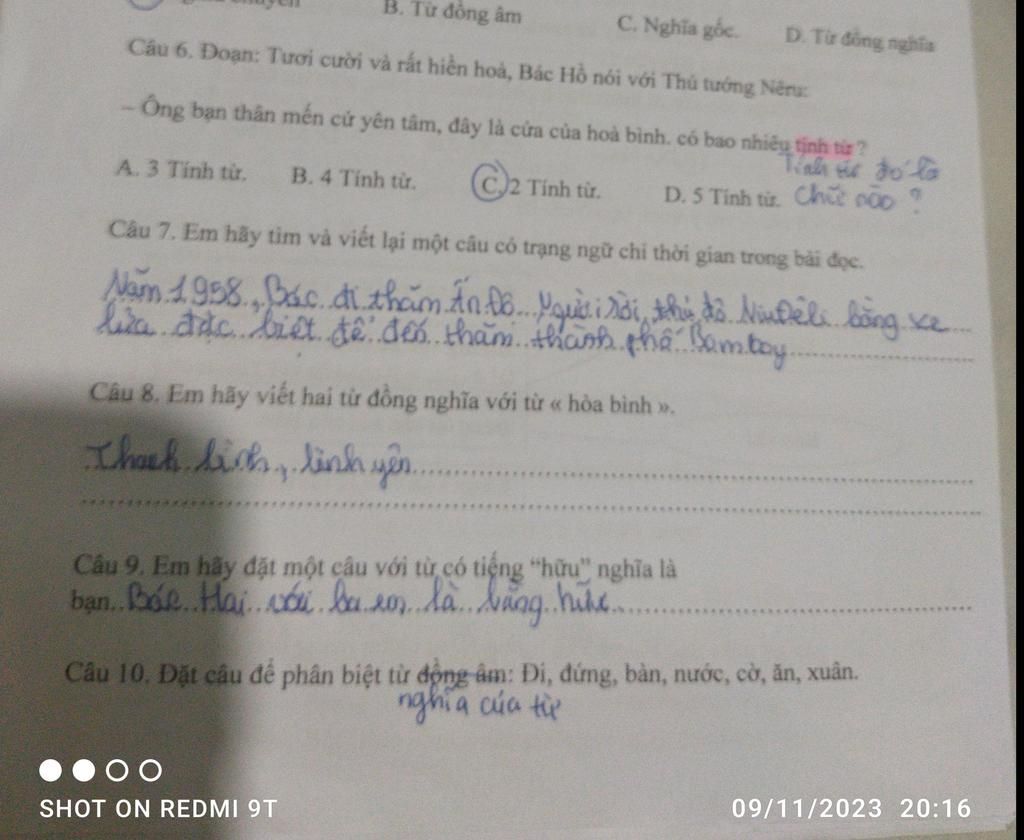 B. Từ đồng âm
C. Nghĩa gốc.
D. Từ đồng nghĩa
Câu 6. Đoạn: Tươi cười và rất hiền hoà, Bác Hồ nói với Thủ tướng Nêru:
– Ông bạn thân mến cứ yên tâm, đây là cửa của hoà bình. có bao nhiêu tính từ?
Tính từ đó là
A. 3 Tính từ. B. 4 Tính từ. C. 2 Tính từ. D. 5 Tính từ. Chữ nào?
Câu 7. Em hãy tìm và viết lại một câu có trạng ngữ chỉ thời gian trong bài đọc.
Năm 1958, Bác đi thăm Ấn Độ. Người rời thủ đô Niu Đêli bằng xe
lửa đặc biệt để đến thăm thành phố Bombay
Câu 8. Em hãy viết hai từ đồng nghĩa với từ « hòa bình ».
bình yên
Câu 9. Em hãy đặt một câu với từ có tiếng “hữu” nghĩa là
bạn. Bác Hai với ba em là bằng hữu.
Câu 10. Đặt câu để phân biệt từ đồng âm: Đi, đứng, bàn, nước, cờ, ăn, xuân.
nghĩa của từ
SHOT ON REDMI 9T
09/11/2023 20:16